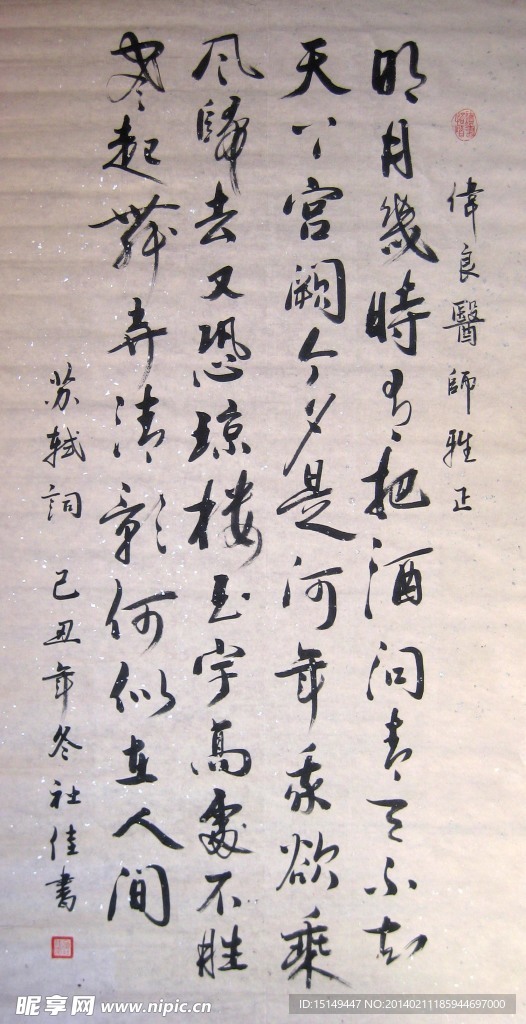 偉良醫師雅正
明月幾時有把酒问青天不知
天下宫阙今夕是河年我欲乘
风歸去又恐琼楼玉宇高處不胜
寒起舞弄清影何似在人间
苏軾詞 己丑年冬社佳書
昵享网 www.nipic.cn
ID:15149447 NO:20140211185944697000